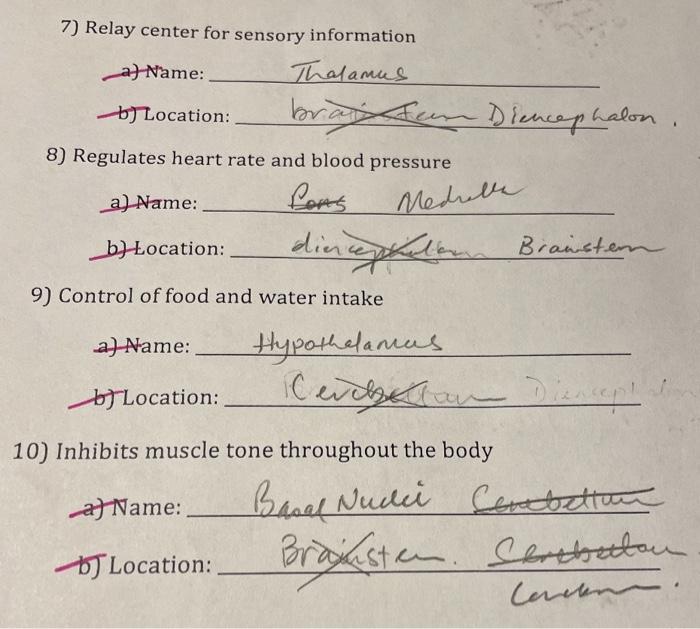 7) Relay center for sensory information
a) Name: Thalamus
b) Location: brainstem Diencephalon.
8) Regulates heart rate and blood pressure
a) Name: Pons Medulla
b) Location: diencephalon Brainstem
9) Control of food and water intake
a) Name: Hypothalamus
b) Location: Diencephalon
10) Inhibits muscle tone throughout the body
a) Name: Basal Nuclei Cerebellum
b) Location: Brainstem. Cerebellum